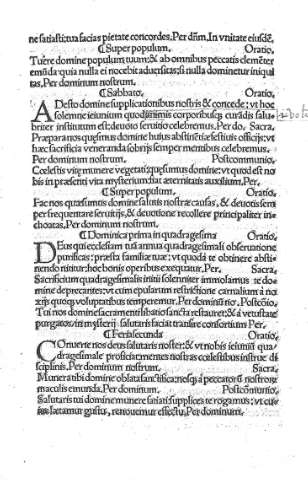 ne satiasti: tua facias pietate concordes. Per dñm. In vnitate eiusdē.
¶ Super populum. Oratio.
Tuere domine populum tuum: & ab omnibus peccatis clemēter
emūda: quia nulla ei nocebit aduersitas: si nulla dominetur iniqui
tas. Per dominum nostrum.
¶ Sabbato. Oratio.
Adesto domine supplicationibus nostris & concede: vt hoc
solemne ieiunium quod animis corporibusq; curādis salu
briter institutum est: deuoto seruitio celebremus. Per. Sacra.
Præparamus quęsumus domine huius abstinētiæ festiuis officijs: vt
hæc sacrificia veneranda sobrijs semper mentibus celebremus.
Per dominum nostrum. Postcommunio.
Cœlestis vitę munere vegetati: quęsumus domine: vt quod est no
bis in præsenti vita mysterium: fiat æternitatis auxilium. Per.
¶ Super populum. Oratio.
Fac nos quæsumus domine salutis nostræ causas, & deuotis sem
per frequentare seruitijs, & deuotione recollere principaliter in
choatas. Per dominum nostrum.
¶ Dominica prima in quadragesima Oratio.
Deus qui ecclesiam tuā annua quadragesimali obseruatione
purificas: præsta familiæ tuæ: vt quod a te obtinere absti
nendo nititur: hoc bonis operibus exequatur. Per. Sacra.
Sacrificium quadragesimalis initij solenniter immolamus te do
mine deprecantes: vt cum epularum restrictione carnalium a no
xijs quoq; voluptatibus temperemur. Per dominū no. Postcōio.
Tui nos domine sacramenti libatio sancta restauret: & a vetustate
purgatos in mysterij salutaris faciat transire consortium Per.
¶ Feria secunda Oratio.
Conuerte nos deus salutaris noster: & vt nobis ieiuniū qua
dragesimale proficiat: mentes nostras cœlestibus instrue di
sciplinis. Per dominum nostrum. Sacra.
Munera tibi domine oblata sanctifica: nosq; a peccatorū nostrorū
maculis emunda. Per dominum. Postcōmunio.
Salutaris tui domine munere satiati supplices te rogamus: vt cu
ius lætamur gustu, renouemur effectu. Per dominum.